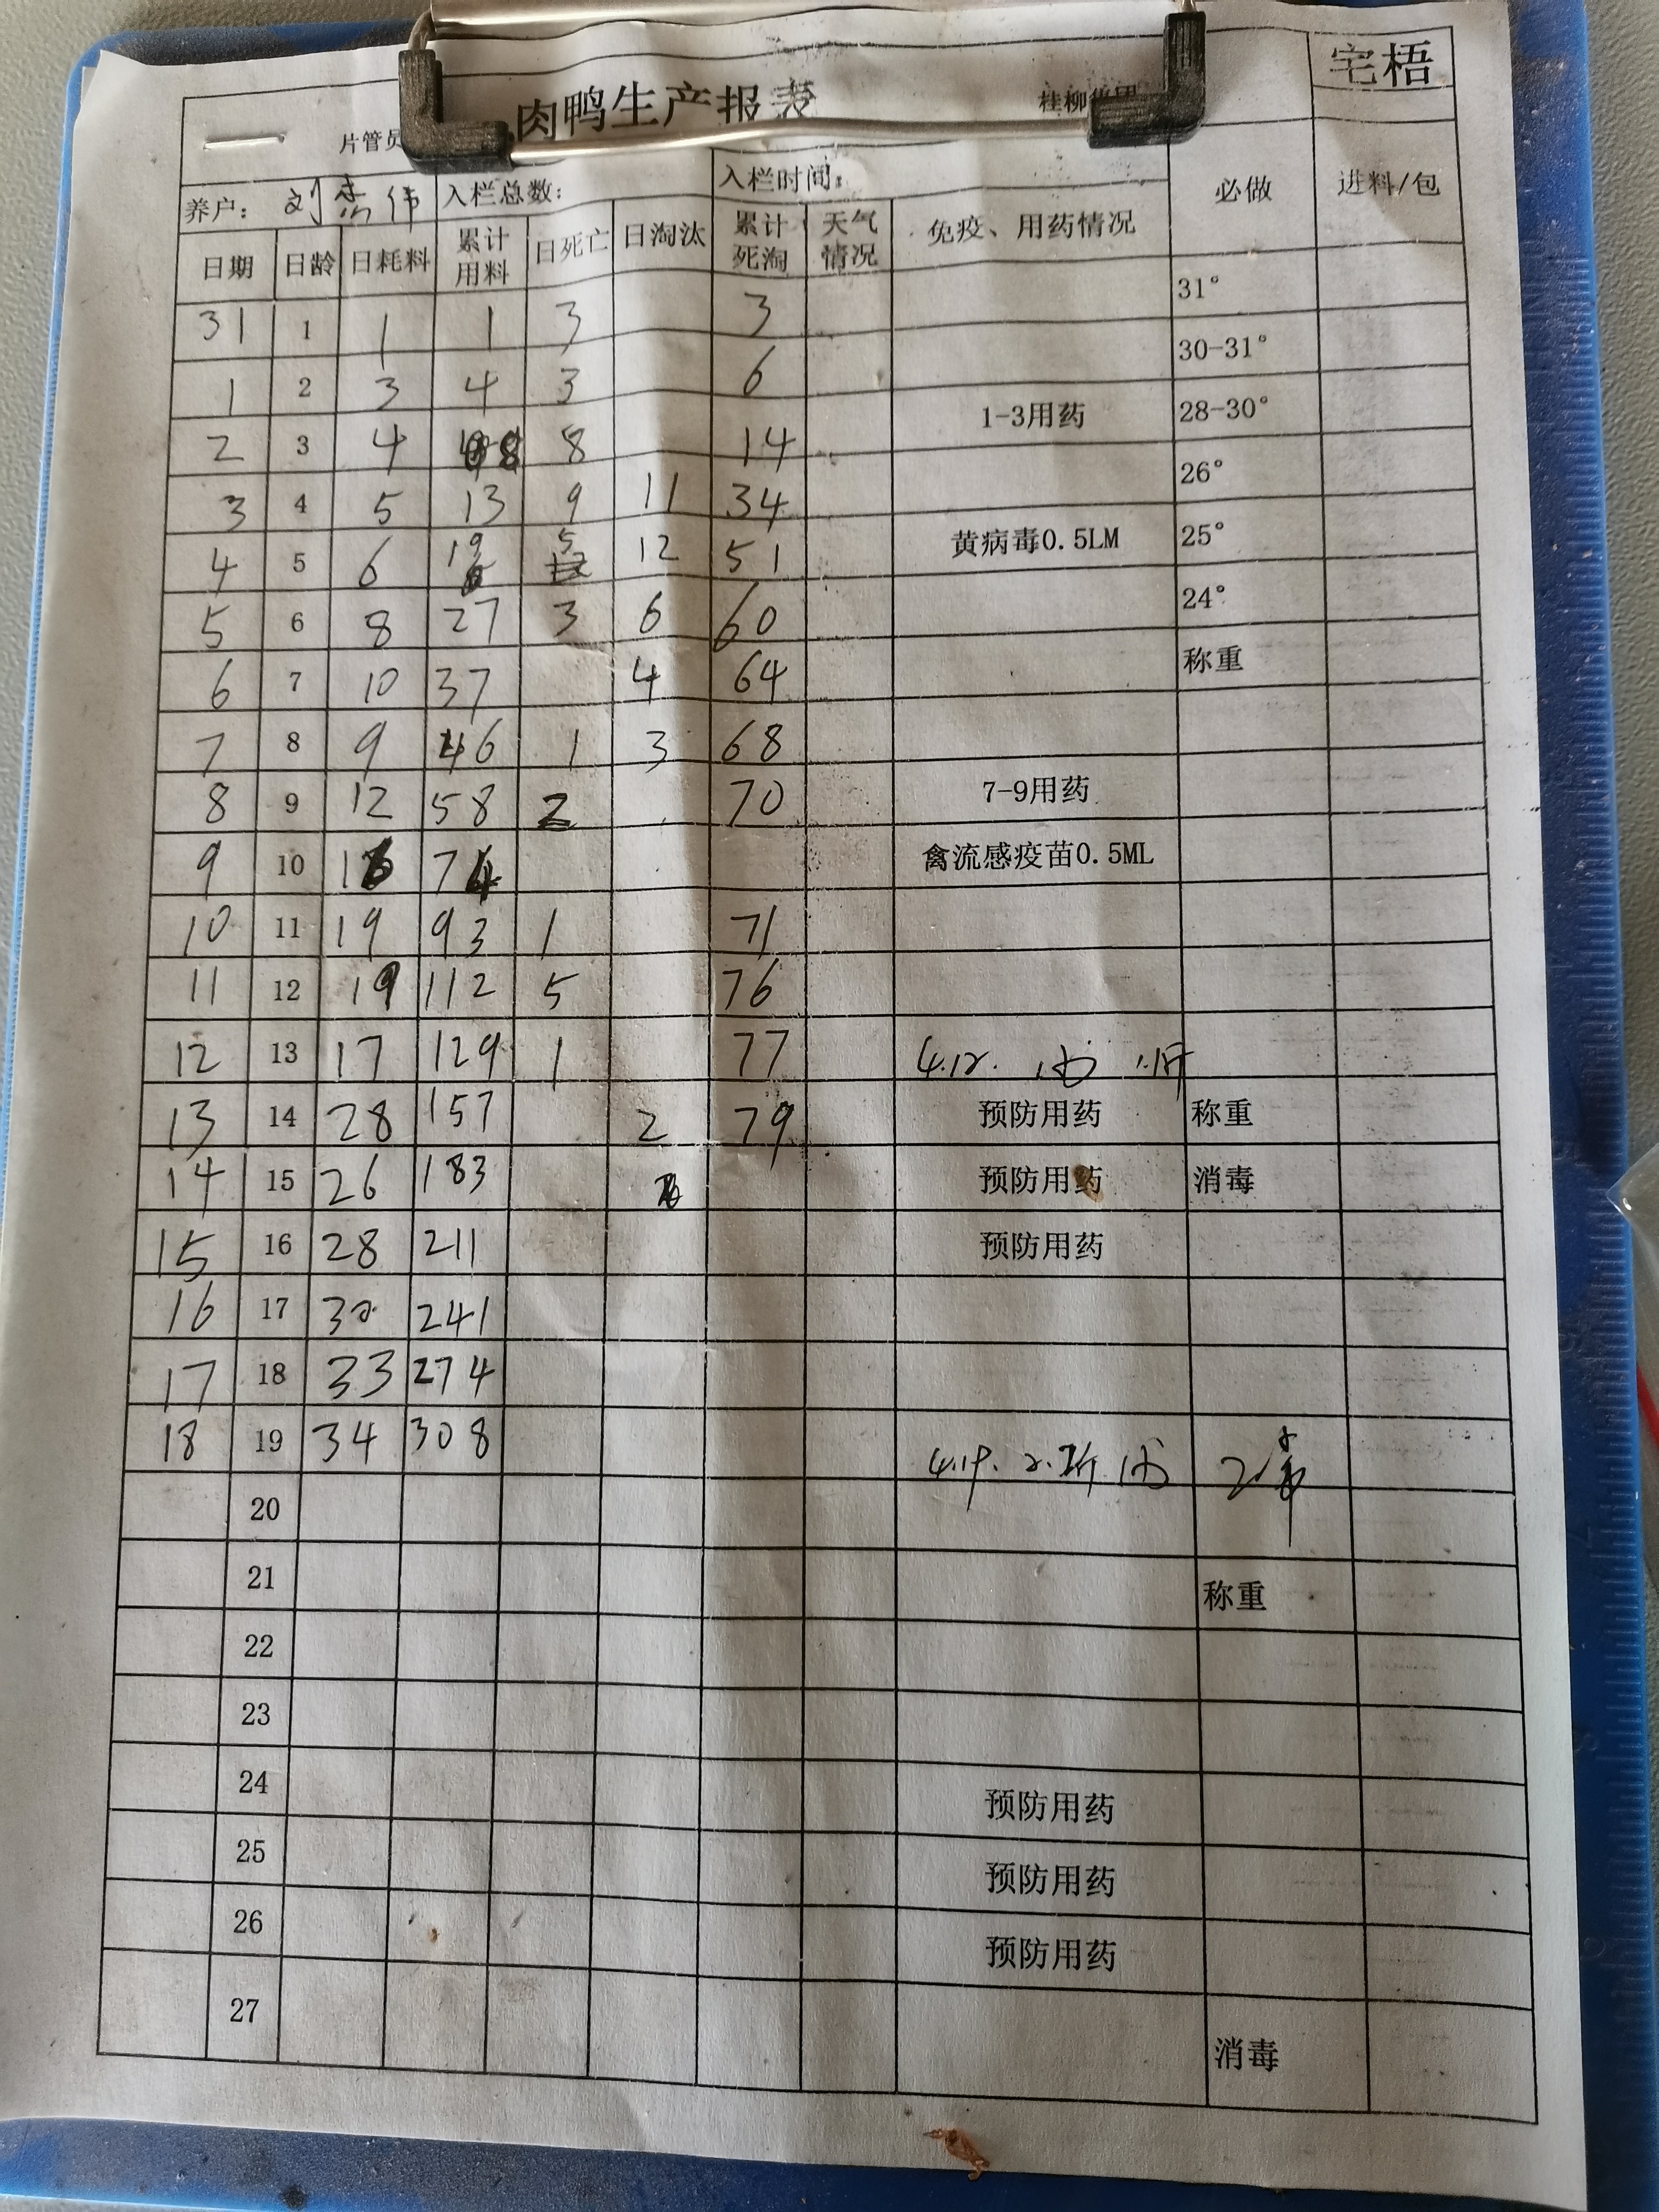 宅梧
肉鸭生产报表
片管员
养户： 刘 伟 入栏总数： 入栏时间： 必做 进料/包
日期 日龄 日耗料 累计用料 日死亡 日淘汰 累计死淘 天气情况 免疫、用药情况
31 1 1 1 3 3 31°
1 2 3 4 3 6 30-31°
2 3 4 8 8 14 1-3用药 28-30°
3 4 5 13 9 11 34 26°
4 5 6 19 5 12 51 黄病毒0.5LM 25°
5 6 8 27 3 6 60 24°
6 7 10 37 4 64 称重
7 8 9 46 1 3 68
8 9 12 58 2 70 7-9用药
9 10 16 74 禽流感疫苗0.5ML
10 11 19 93 1 71
11 12 19 112 5 76
12 13 17 129 1 77 4.12.
13 14 28 157 2 79 预防用药 称重
14 15 26 183 预防用药 消毒
15 16 28 211 预防用药
16 17 30 241
17 18 33 274
18 19 34 308
20
21 称重
22
23
24 预防用药
25 预防用药
26 预防用药
27 消毒